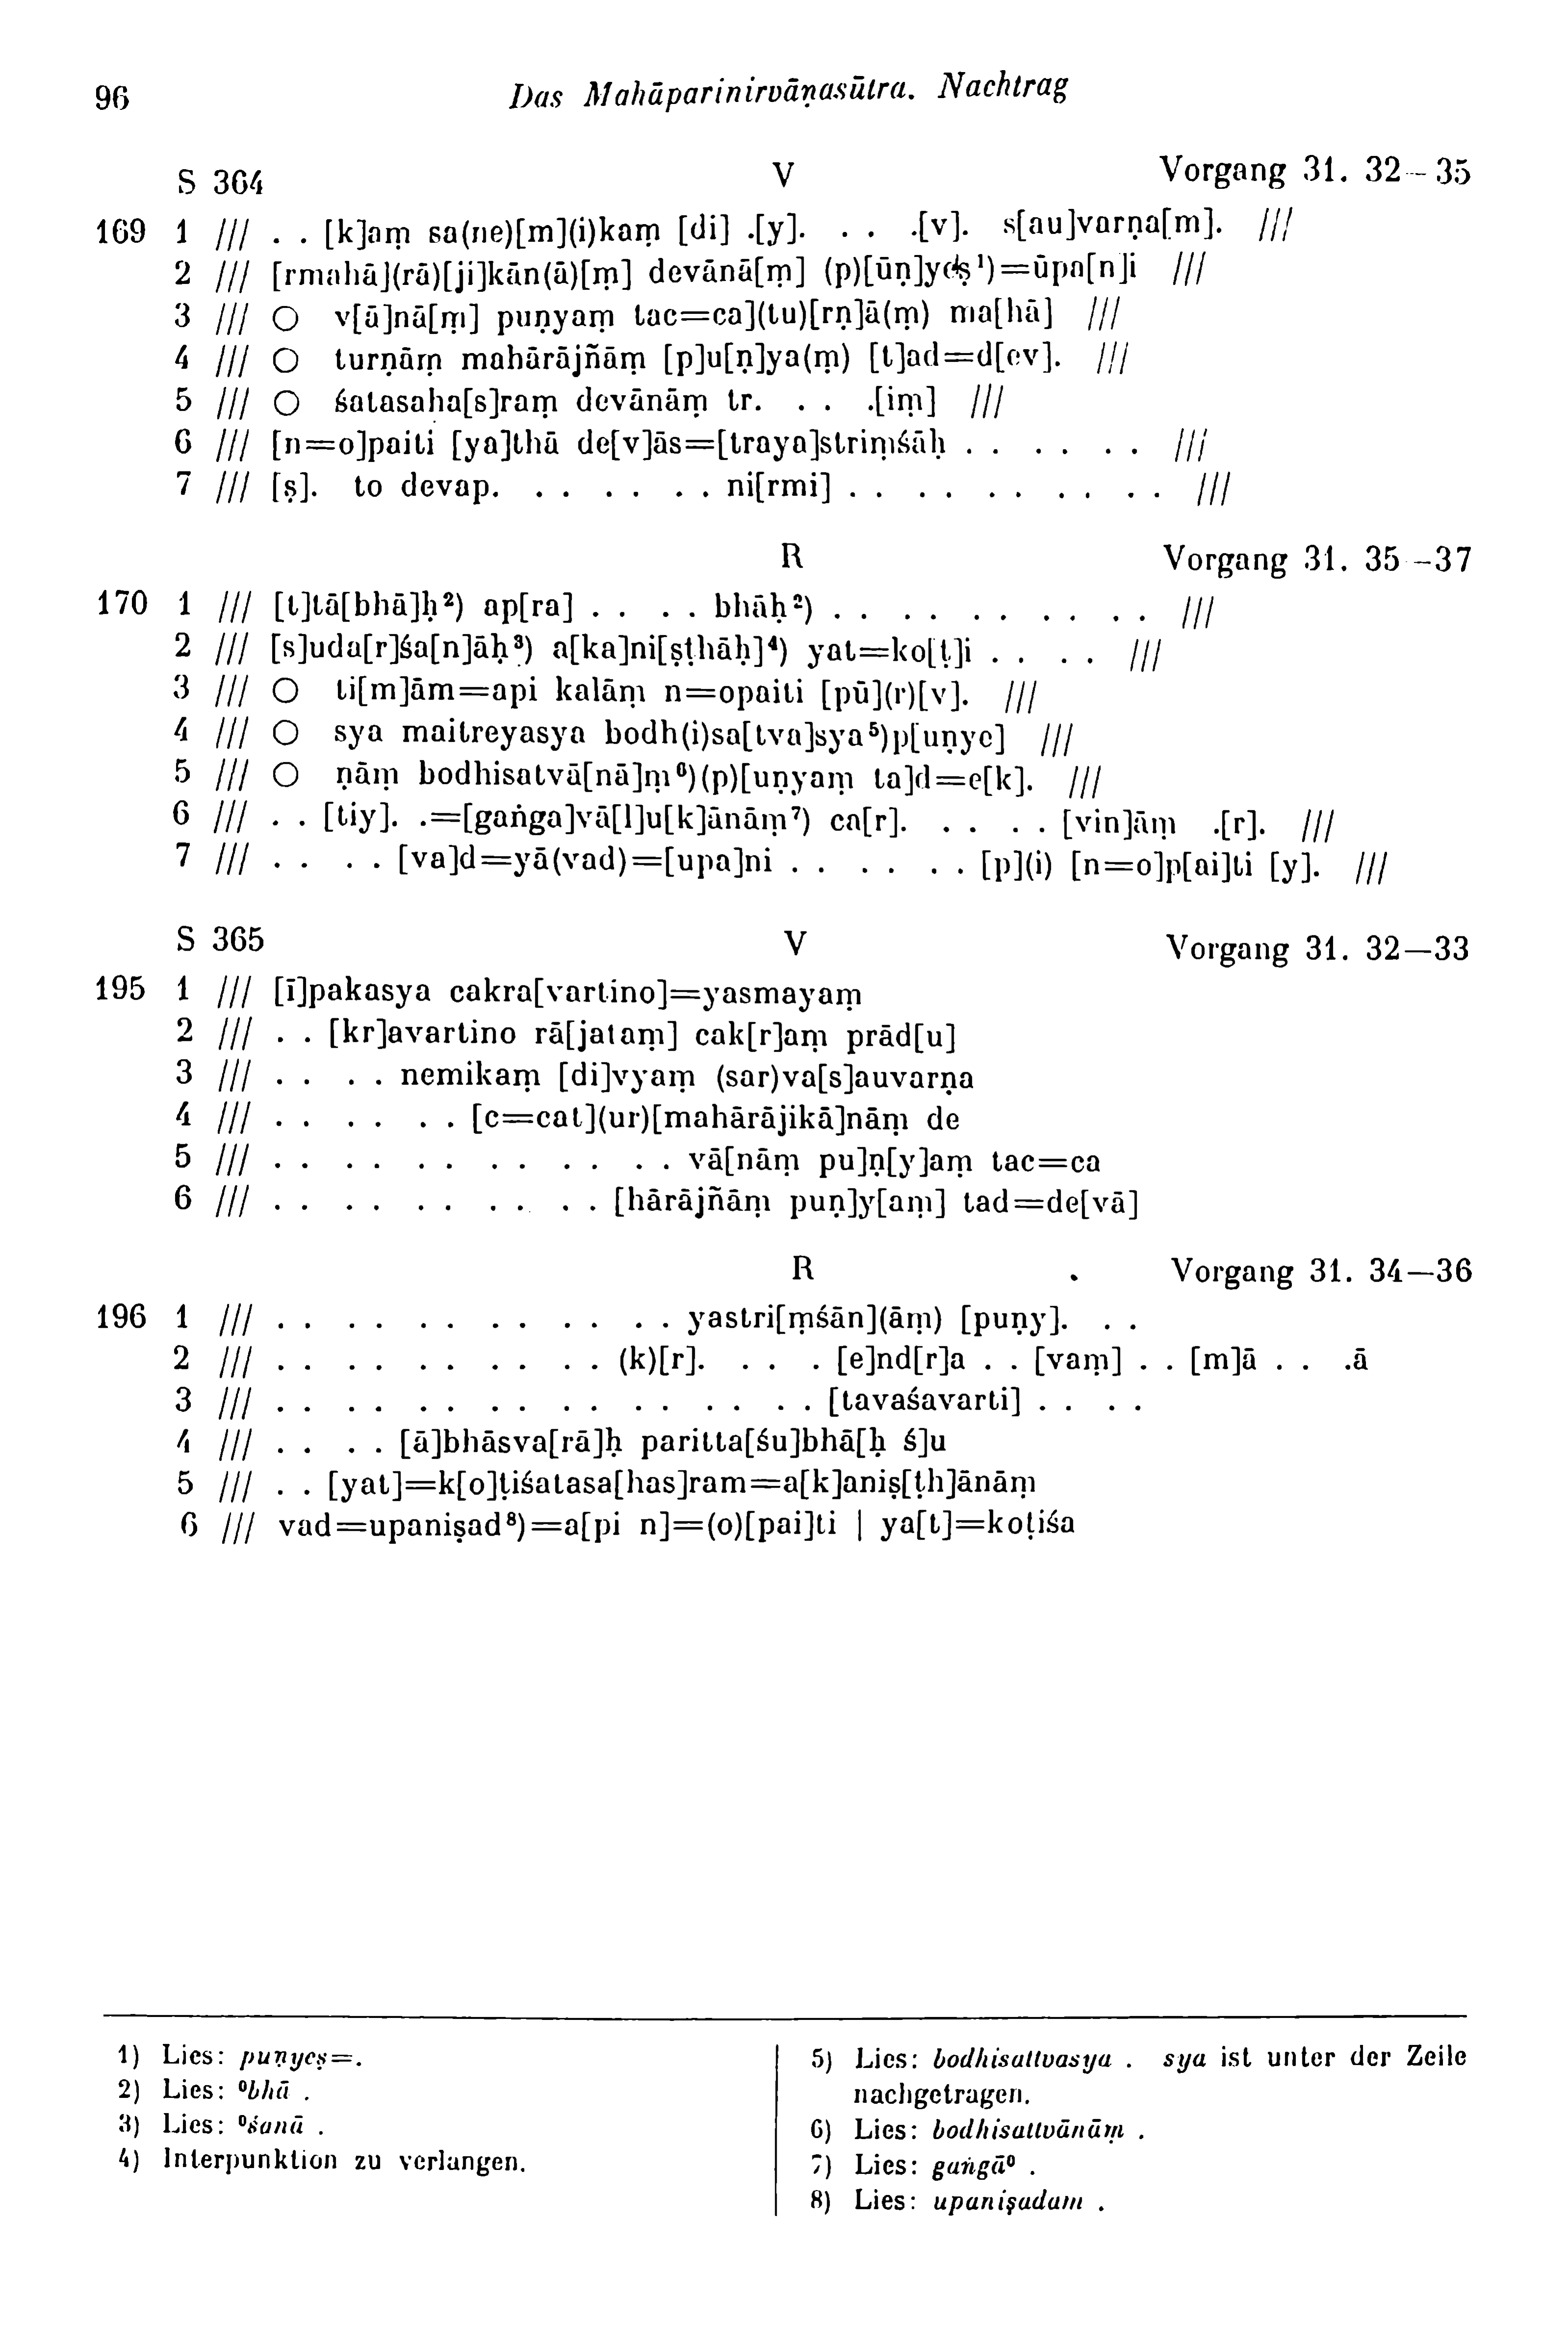 96 Das Mahāparinirvāṇasūtra. Nachtrag
S 364 V Vorgang 31. 32–35
169 1 /// . . [k]aṃ sa(ne)[m](i)kaṃ [di] .[y]. . . .[v]. s[au]varṇa[m]. ///
2 /// [rmahā](rā)[ji]kān(ā)[ṃ] devānā[ṃ] (p)[ūṇ]yeṣ¹)=ūpa[n]i ///
3 /// ○ v[ā]nā[ṃ] puṇyaṃ tac=ca](tu)[rṇ]ā(ṃ) ma[hā] ///
4 /// ○ turṇāṃ mahārājñāṃ [p]u[ṇ]ya(ṃ) [t]ad=d[ev]. ///
5 /// ○ śatasaha[s]raṃ devānāṃ tr. . . .[iṃ] ///
6 /// [n=o]paiti [ya]thā de[v]ās=[traya]striṃśāḥ . . . . . . ///
7 /// [ṣ]. to devap. . . . . . . ni[rmi] . . . . . . . . . . ///
R Vorgang 31. 35–37
170 1 /// [t]tā[bhā]ḥ²) ap[ra] . . . . bhāḥ²) . . . . . . . . . . ///
2 /// [s]uda[r]śa[n]āḥ³) a[ka]ni[ṣṭhāḥ]⁴) yat=ko[ṭ]i . . . . ///
3 /// ○ ti[m]ām=api kalāṃ n=opaiti [pū](r)[v]. ///
4 /// ○ sya maitreyasya bodh(i)sa[tva]sya⁵)p[uṇye] ///
5 /// ○ ṇāṃ bodhisatvā[nā]ṃ⁶)(p)[uṇyaṃ ta]d=e[k]. ///
6 /// . . [tiy]. .=[gaṅga]vā[l]u[k]ānāṃ⁷) ca[r]. . . . . [vin]āṃ .[r]. ///
7 /// . . . . [va]d=yā(vad)=[upa]ni . . . . . . [p](i) [n=o]p[ai]ti [y]. ///
S 365 V Vorgang 31. 32—33
195 1 /// [ī]pakasya cakra[vartino]=yasmayaṃ
2 /// . . [kr]avartino rā[jataṃ] cak[r]aṃ prād[u]
3 /// . . . . nemikaṃ [di]vyaṃ (sar)va[s]auvarṇa
4 /// . . . . . . [c=cat](ur)[mahārājikā]nāṃ de
5 /// . . . . . . . . . . . . vā[nāṃ pu]ṇ[y]aṃ tac=ca
6 /// . . . . . . . . . . [hārājñāṃ puṇ]y[aṃ] tad=de[vā]
R . Vorgang 31. 34—36
196 1 /// . . . . . . . . . . . . yastri[ṃśān](āṃ) [puṇy]. . .
2 /// . . . . . . . . . . (k)[r]. . . . [e]nd[r]a . . [vaṃ] . . [m]ā . . .ā
3 /// . . . . . . . . . . . . . . . . [tavaśavarti] . . . .
4 /// . . . . [ā]bhāsva[rā]ḥ paritta[śu]bhā[ḥ ś]u
5 /// . . [yat]=k[o]ṭiśatasa[has]ram=a[k]aniṣ[ṭh]ānāṃ
6 /// vad=upaniṣad⁸)=a[pi n]=(o)[pai]ti | ya[t]=koṭiśa
1) Lies: puṇyeṣ=.
2) Lies: ⁰bhā .
3) Lies: ⁰śanā .
4) Interpunktion zu verlangen.
5) Lies: bodhisattvasya . sya ist unter der Zeile
nachgetragen.
6) Lies: bodhisattvānāṃ .
7) Lies: gaṅgā⁰ .
8) Lies: upaniṣadam .